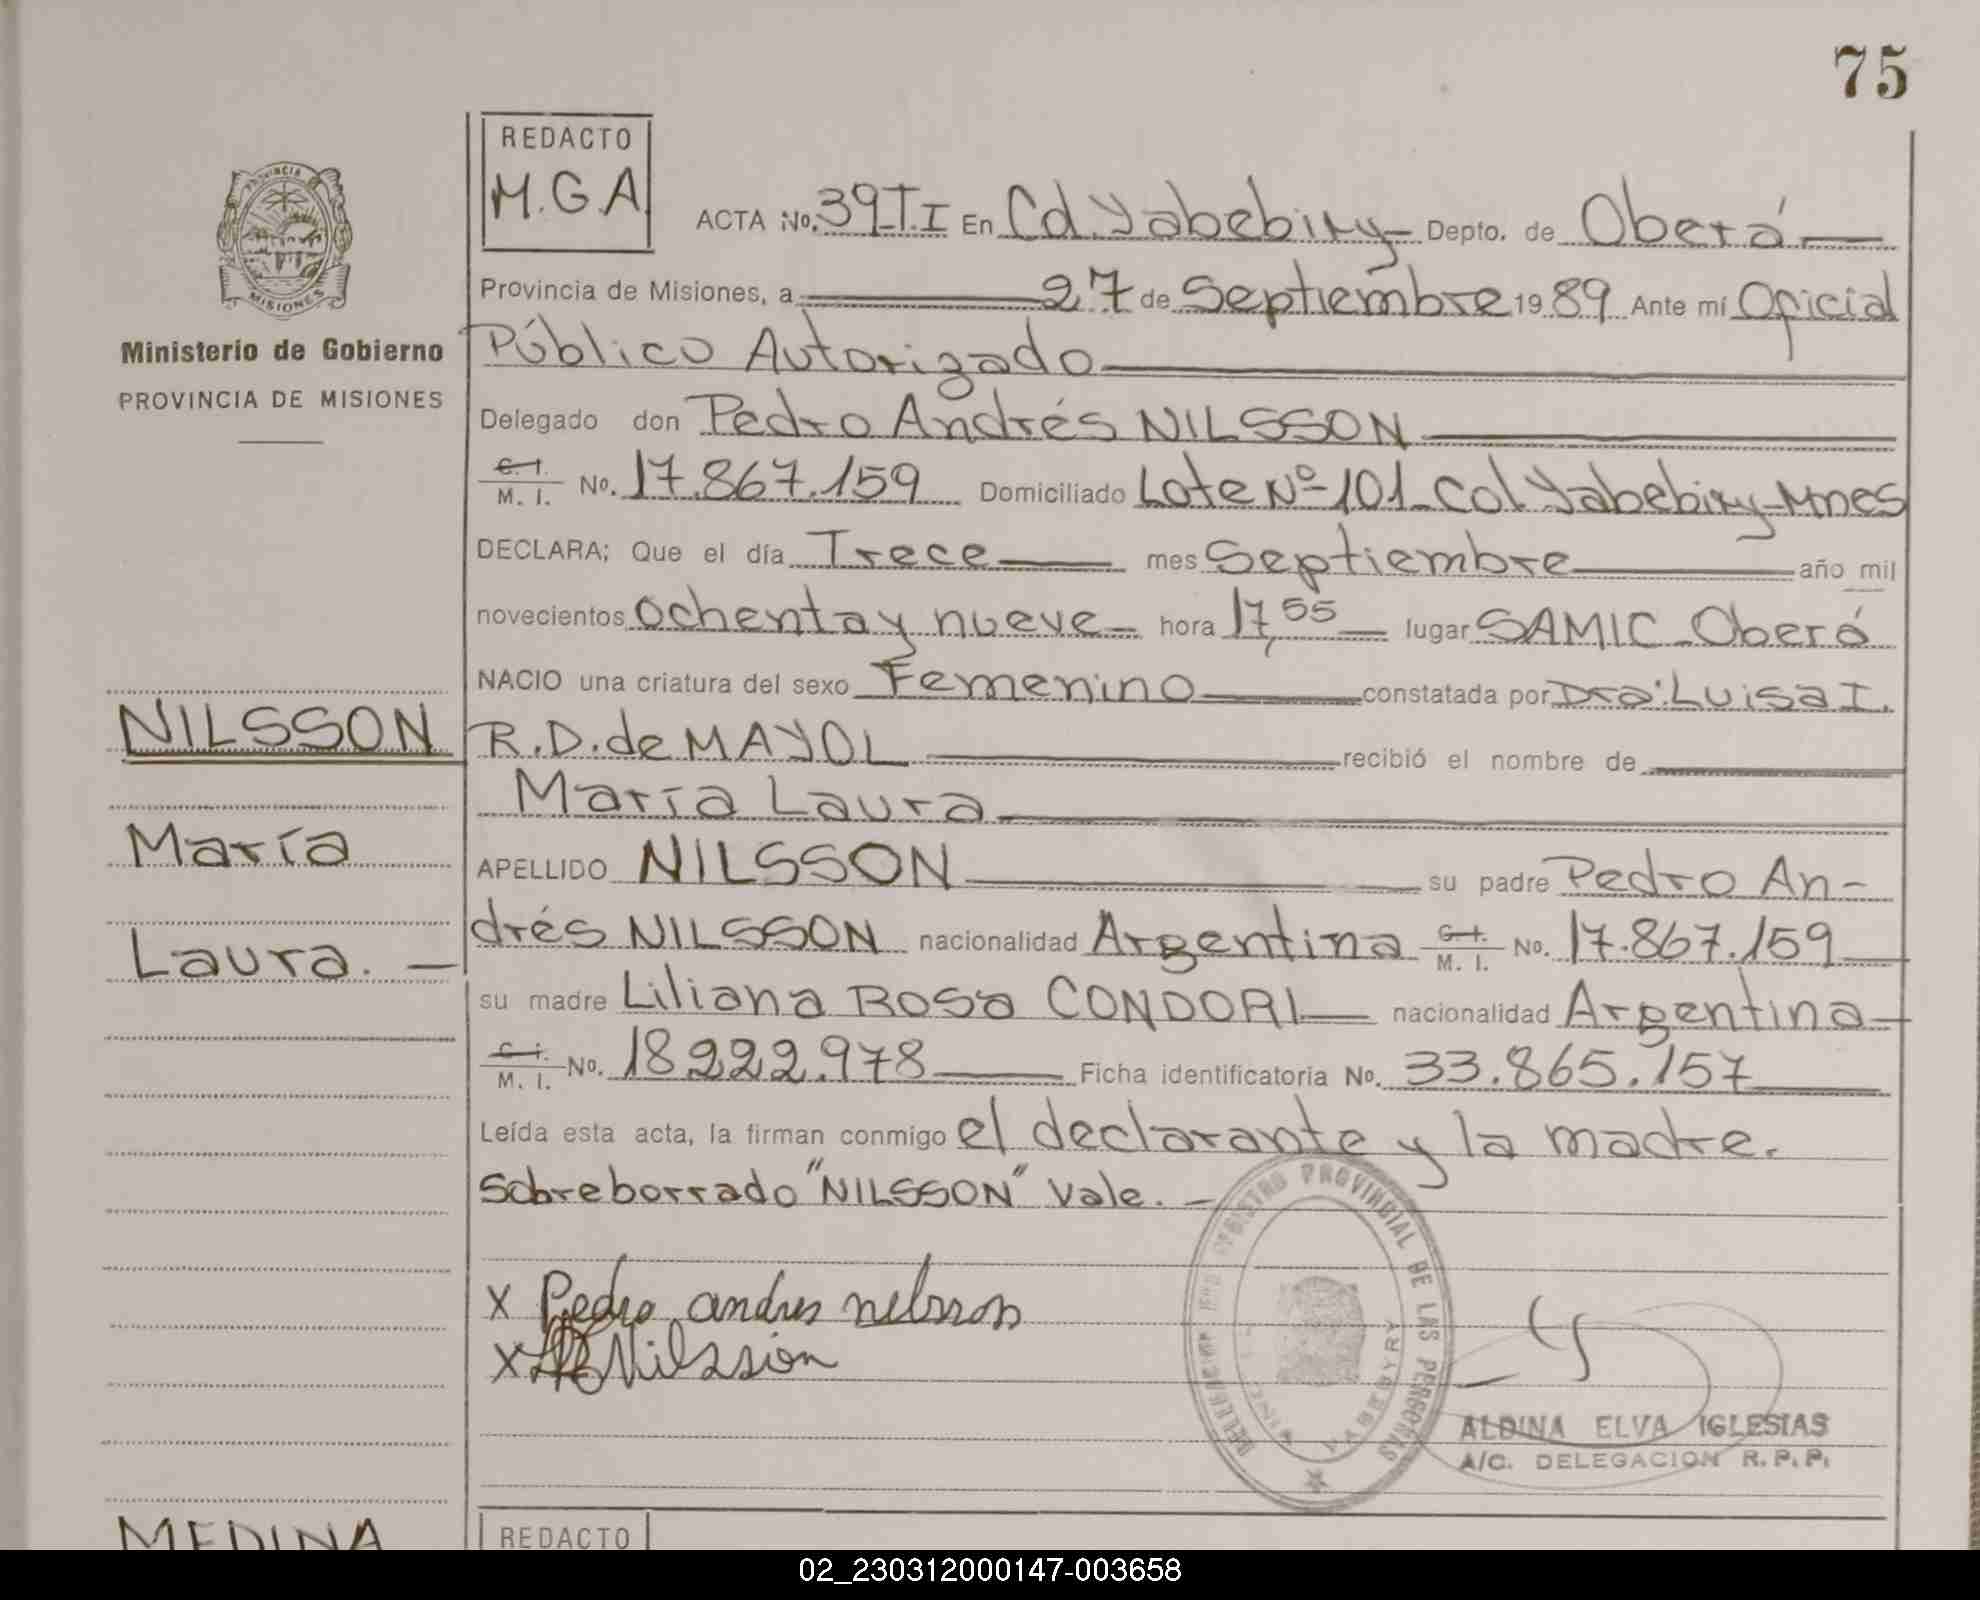 75
REDACTO
M.G.A.
PROVINCIA DE
MISIONES
Ministerio de Gobierno
PROVINCIA DE MISIONES
ACTA No. 39_T.I En Cd. Yabebiry- Depto. de Oberá
Provincia de Misiones, a 27 de Septiembre 1989 Ante mí Oficial
Público Autorizado
Delegado don Pedro Andrés NILSSON
C.I. M. I. No. 17.867.159 Domiciliado Lote Nº 101_Col Yabebiry-Mnes
DECLARA; Que el día Trece mes Septiembre año mil
novecientos ochenta y nueve- hora 17,55 lugar SAMIC_Oberá
NACIO una criatura del sexo Femenino constatada por Dra: Luisa I.
NILSSON
R.D. de MAYOL recibió el nombre de
María Laura
María
APELLIDO NILSSON su padre Pedro An-
Laura. -
drés NILSSON nacionalidad Argentina C.I. M. I. No. 17.867.159
su madre Liliana Rosa CONDORI nacionalidad Argentina
C.I. M. I. No. 18.222.978 Ficha identificatoria No. 33.865.157
Leída esta acta, la firman conmigo el declarante y la madre.
Sobreborrado "NILSSON" vale. -
x Pedro andres nelsson
x Nilssion
REGISTRO PROVINCIAL DE LAS PERSONAS
DELEGACION
YABEBYRY
ALDINA ELVA IGLESIAS
A/C. DELEGACION R. P. P.
MEDINA
REDACTO
02_230312000147-003658